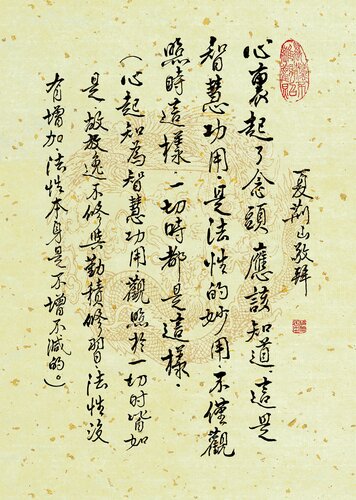 心裏起了念頭應該知道這是
智慧功用是法性的妙用不僅觀
照時這樣．一切時都是這樣．
（心起知為智慧功用觀照於一切时皆如
是故放逸不修與勤積修習法性沒
有增加．法性本身是不增不減的。）
夏荊山敬輯